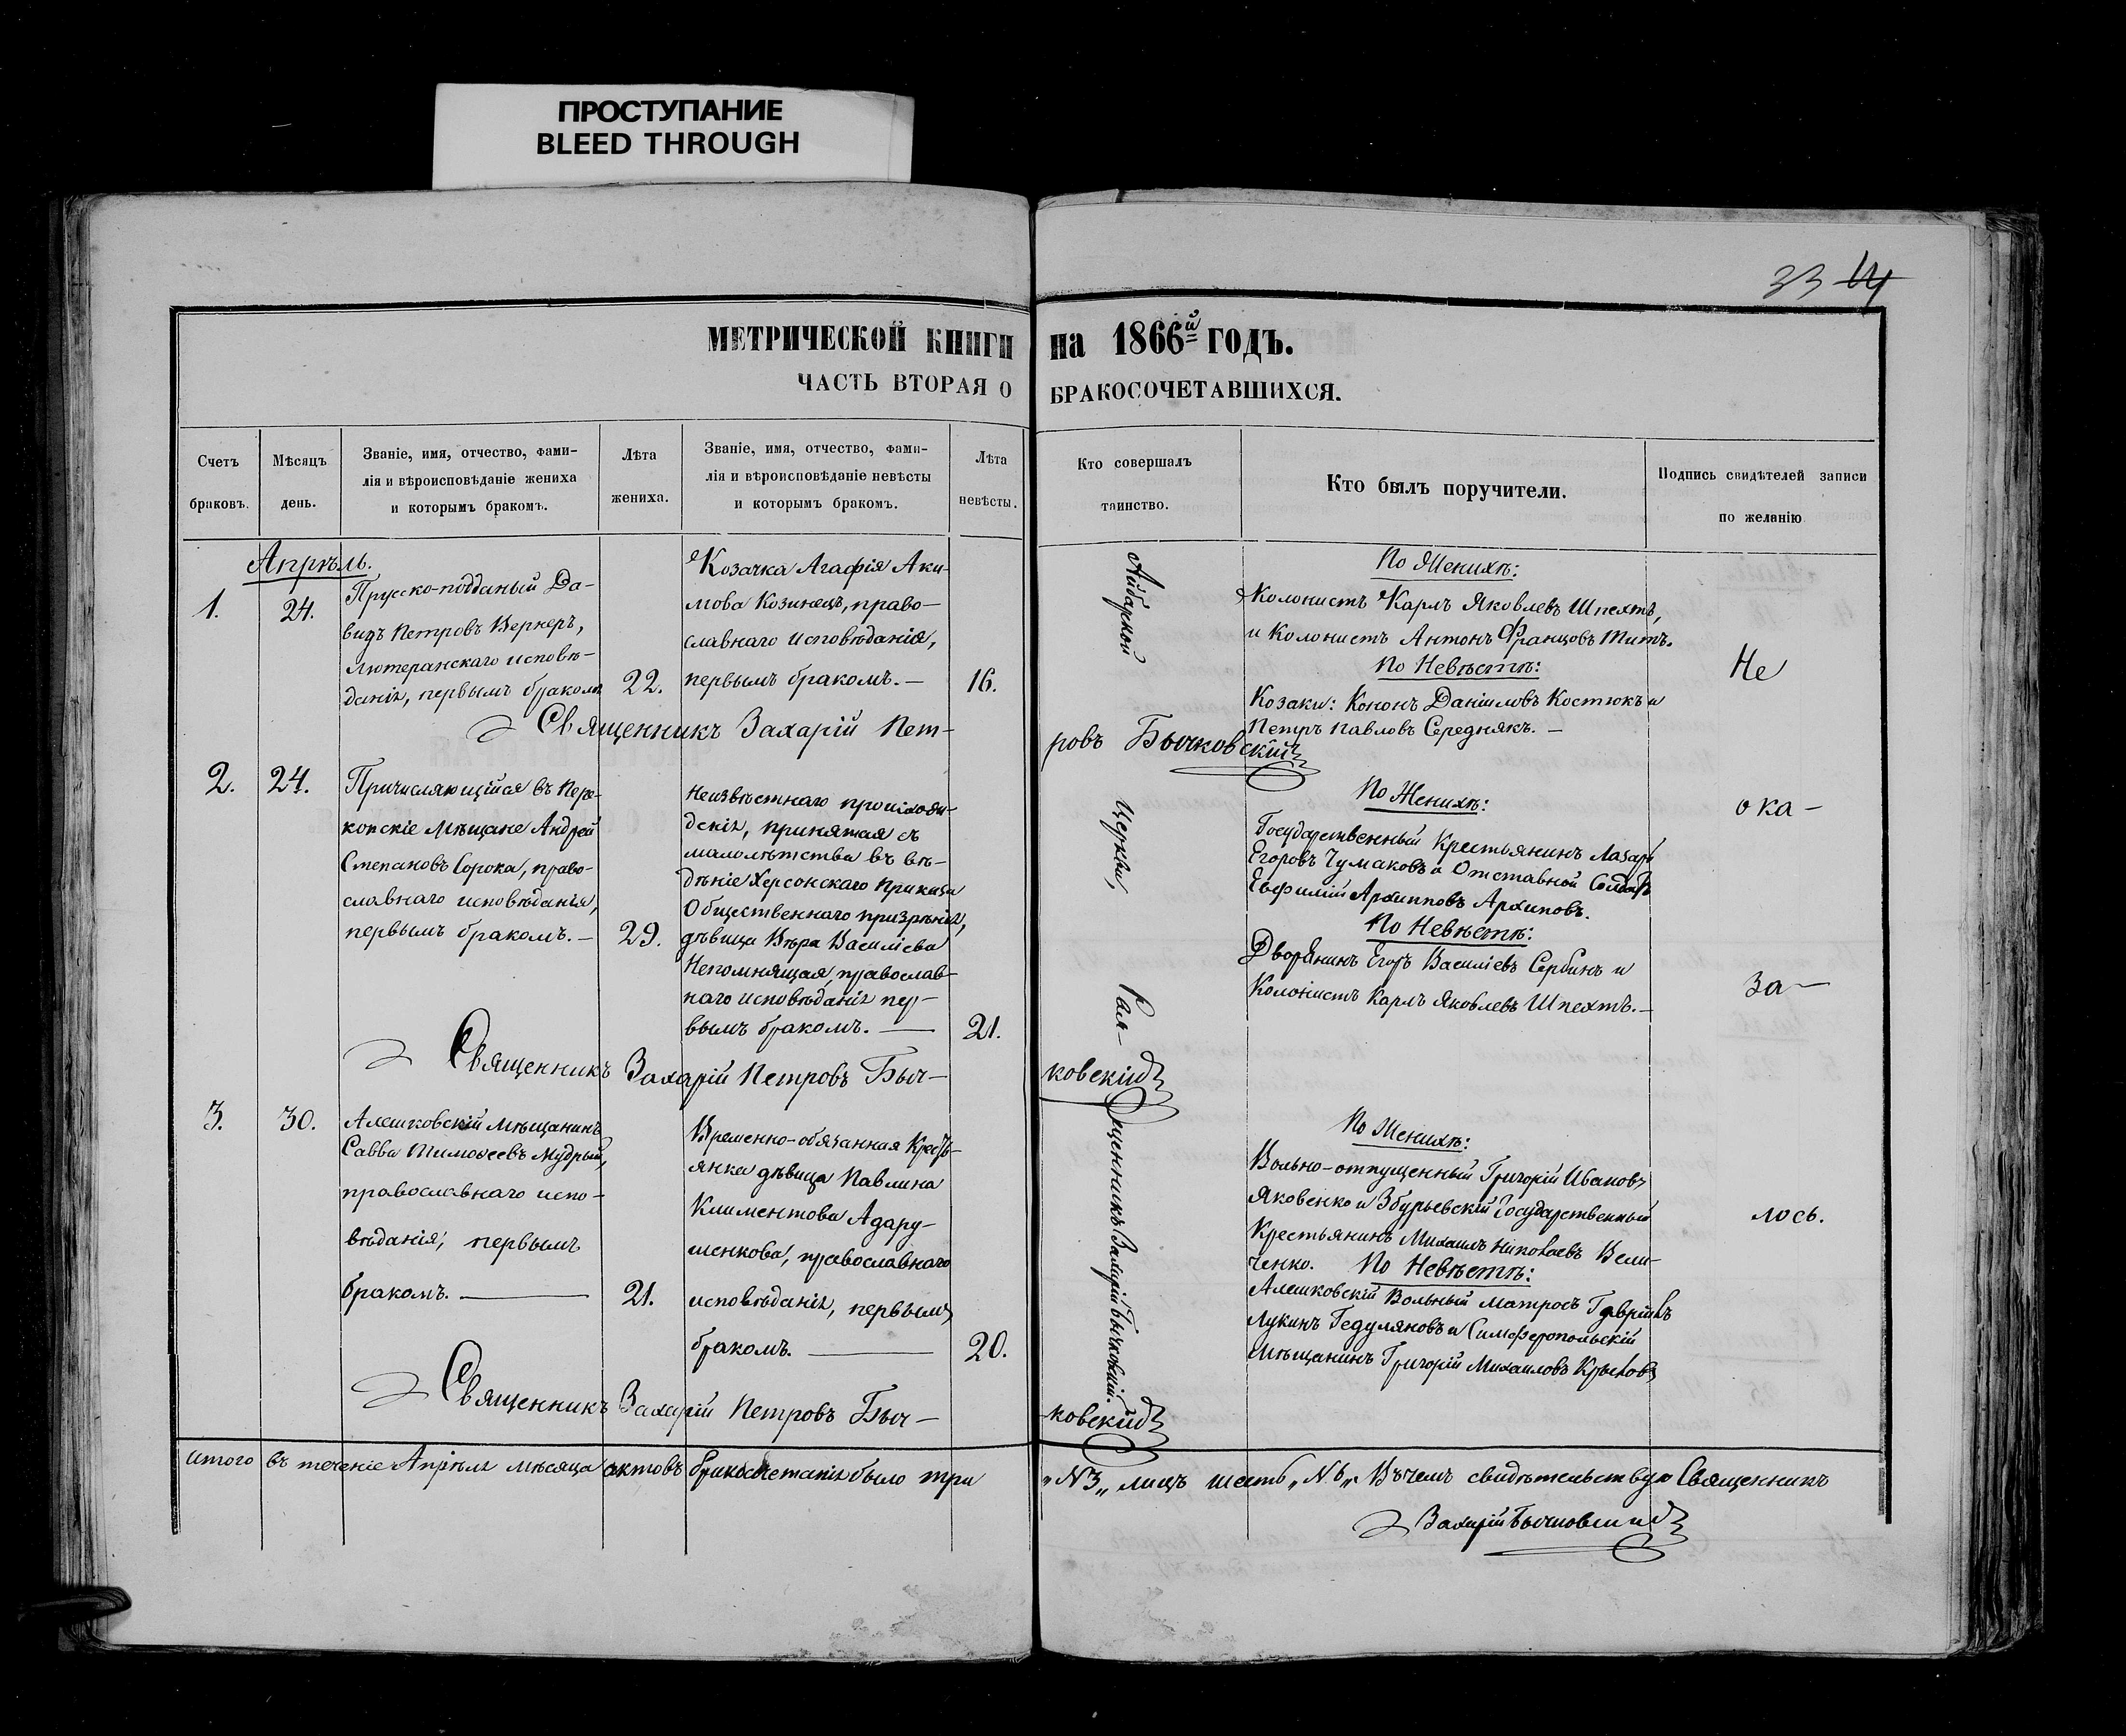 ПРОСТУПАНИЕ
BLEED THROUGH
33 14
МЕТРИЧЕСКОЙ КНИГИ на 1866й ГОДЪ.
ЧАСТЬ ВТОРАЯ О БРАКОСОЧЕТАВШИХСЯ.
Счетъ
браковъ.
Мѣсяцъ
день.
Званіе, имя, отчество, фами-
лія и вѣроисповѣданіе жениха
и которымъ бракомъ.
Лѣта
жениха.
Званіе, имя, отчество, фами-
лія и вѣроисповѣданіе невѣсты
и которымъ бракомъ.
Лѣта
невѣсты.
Кто совершалъ
таинство.
Кто былъ поручители.
Подпись свидѣтелей записи
по желанію
Апрѣль.
1.
24.
Прусско-подданый Да-
видъ Петровъ Вернеръ,
лютеранскаго исповѣ-
данія, первымъ бракомъ
22.
Козачка Агафія Аки-
мова Козинецъ, право-
славнаго исповѣданія,
первымъ бракомъ. —
16.
По Женихѣ:
Колонистъ Карлъ Яковлевъ Шпехтъ,
и Колонистъ Антонъ Францовъ Титъ.
По Невѣстѣ:
Козаки: Кононъ Даніиловъ Костюкъ и
Петръ Павловъ Середнякъ. —
Священникъ Захарій Пет-
ровъ Бычковскій
2.
24.
Причисляющійся въ Пере-
копскіе Мѣщане Андрей
Степановъ Сорока, право-
славнаго исповѣданія,
первымъ бракомъ. —
29.
Неизвѣстнаго происхож-
денія, принятая съ
малолѣтства въ вѣ-
дѣніе Херсонскаго Приказа
Общественнаго призрѣнія,
дѣвица Вѣра Василіева
Непомнящая, православ-
наго исповѣданія пер-
вымъ бракомъ. —
21.
По Женихѣ:
Государственный Крестьянинъ Лазарь
Егоровъ Чумаковъ и Отставной Солдатъ
Евфимій Архипповъ Архиповъ.
По Невѣстѣ:
Дворянинъ Егоръ Василіевъ Сербинъ и
Колонистъ Карлъ Яковлевъ Шпехтъ. —
Священникъ Захарій Петровъ Быч-
ковскій
3.
30.
Алешковскій Мѣщанинъ
Савва Тимоѳеевъ Мудрый,
православнаго испо-
вѣданія, первымъ
бракомъ. —
21.
Временно-обязанная Кресть-
янка дѣвица Павлина
Климентова Адару-
менкова, православнаго
исповѣданія, первымъ
бракомъ. —
20.
По Женихѣ:
Вольно-отпущенный Григорій Ивановъ
Яковенко и Збурьевскій Государственный
Крестьянинъ Михаилъ Николаевъ Вели-
ченко. По Невѣстѣ:
Алешковскій Вольный матросъ Гавріилъ
Лукинъ Гедуляновъ и Симферопольскій
Мѣщанинъ Григорій Михаиловъ Крыловъ
Священникъ Захарій Петровъ Быч-
ковскій
Айбарской
Церкви,
Священникъ Захарій Бычковскій.
Не
ока-
за-
лось.
Итого въ теченіе Апрѣля мѣсяца актовъ бракосочетанія было три „№3„ лицъ шесть „№6„. Въ чемъ свидѣтельствую Священникъ
Захарій Бычковскій